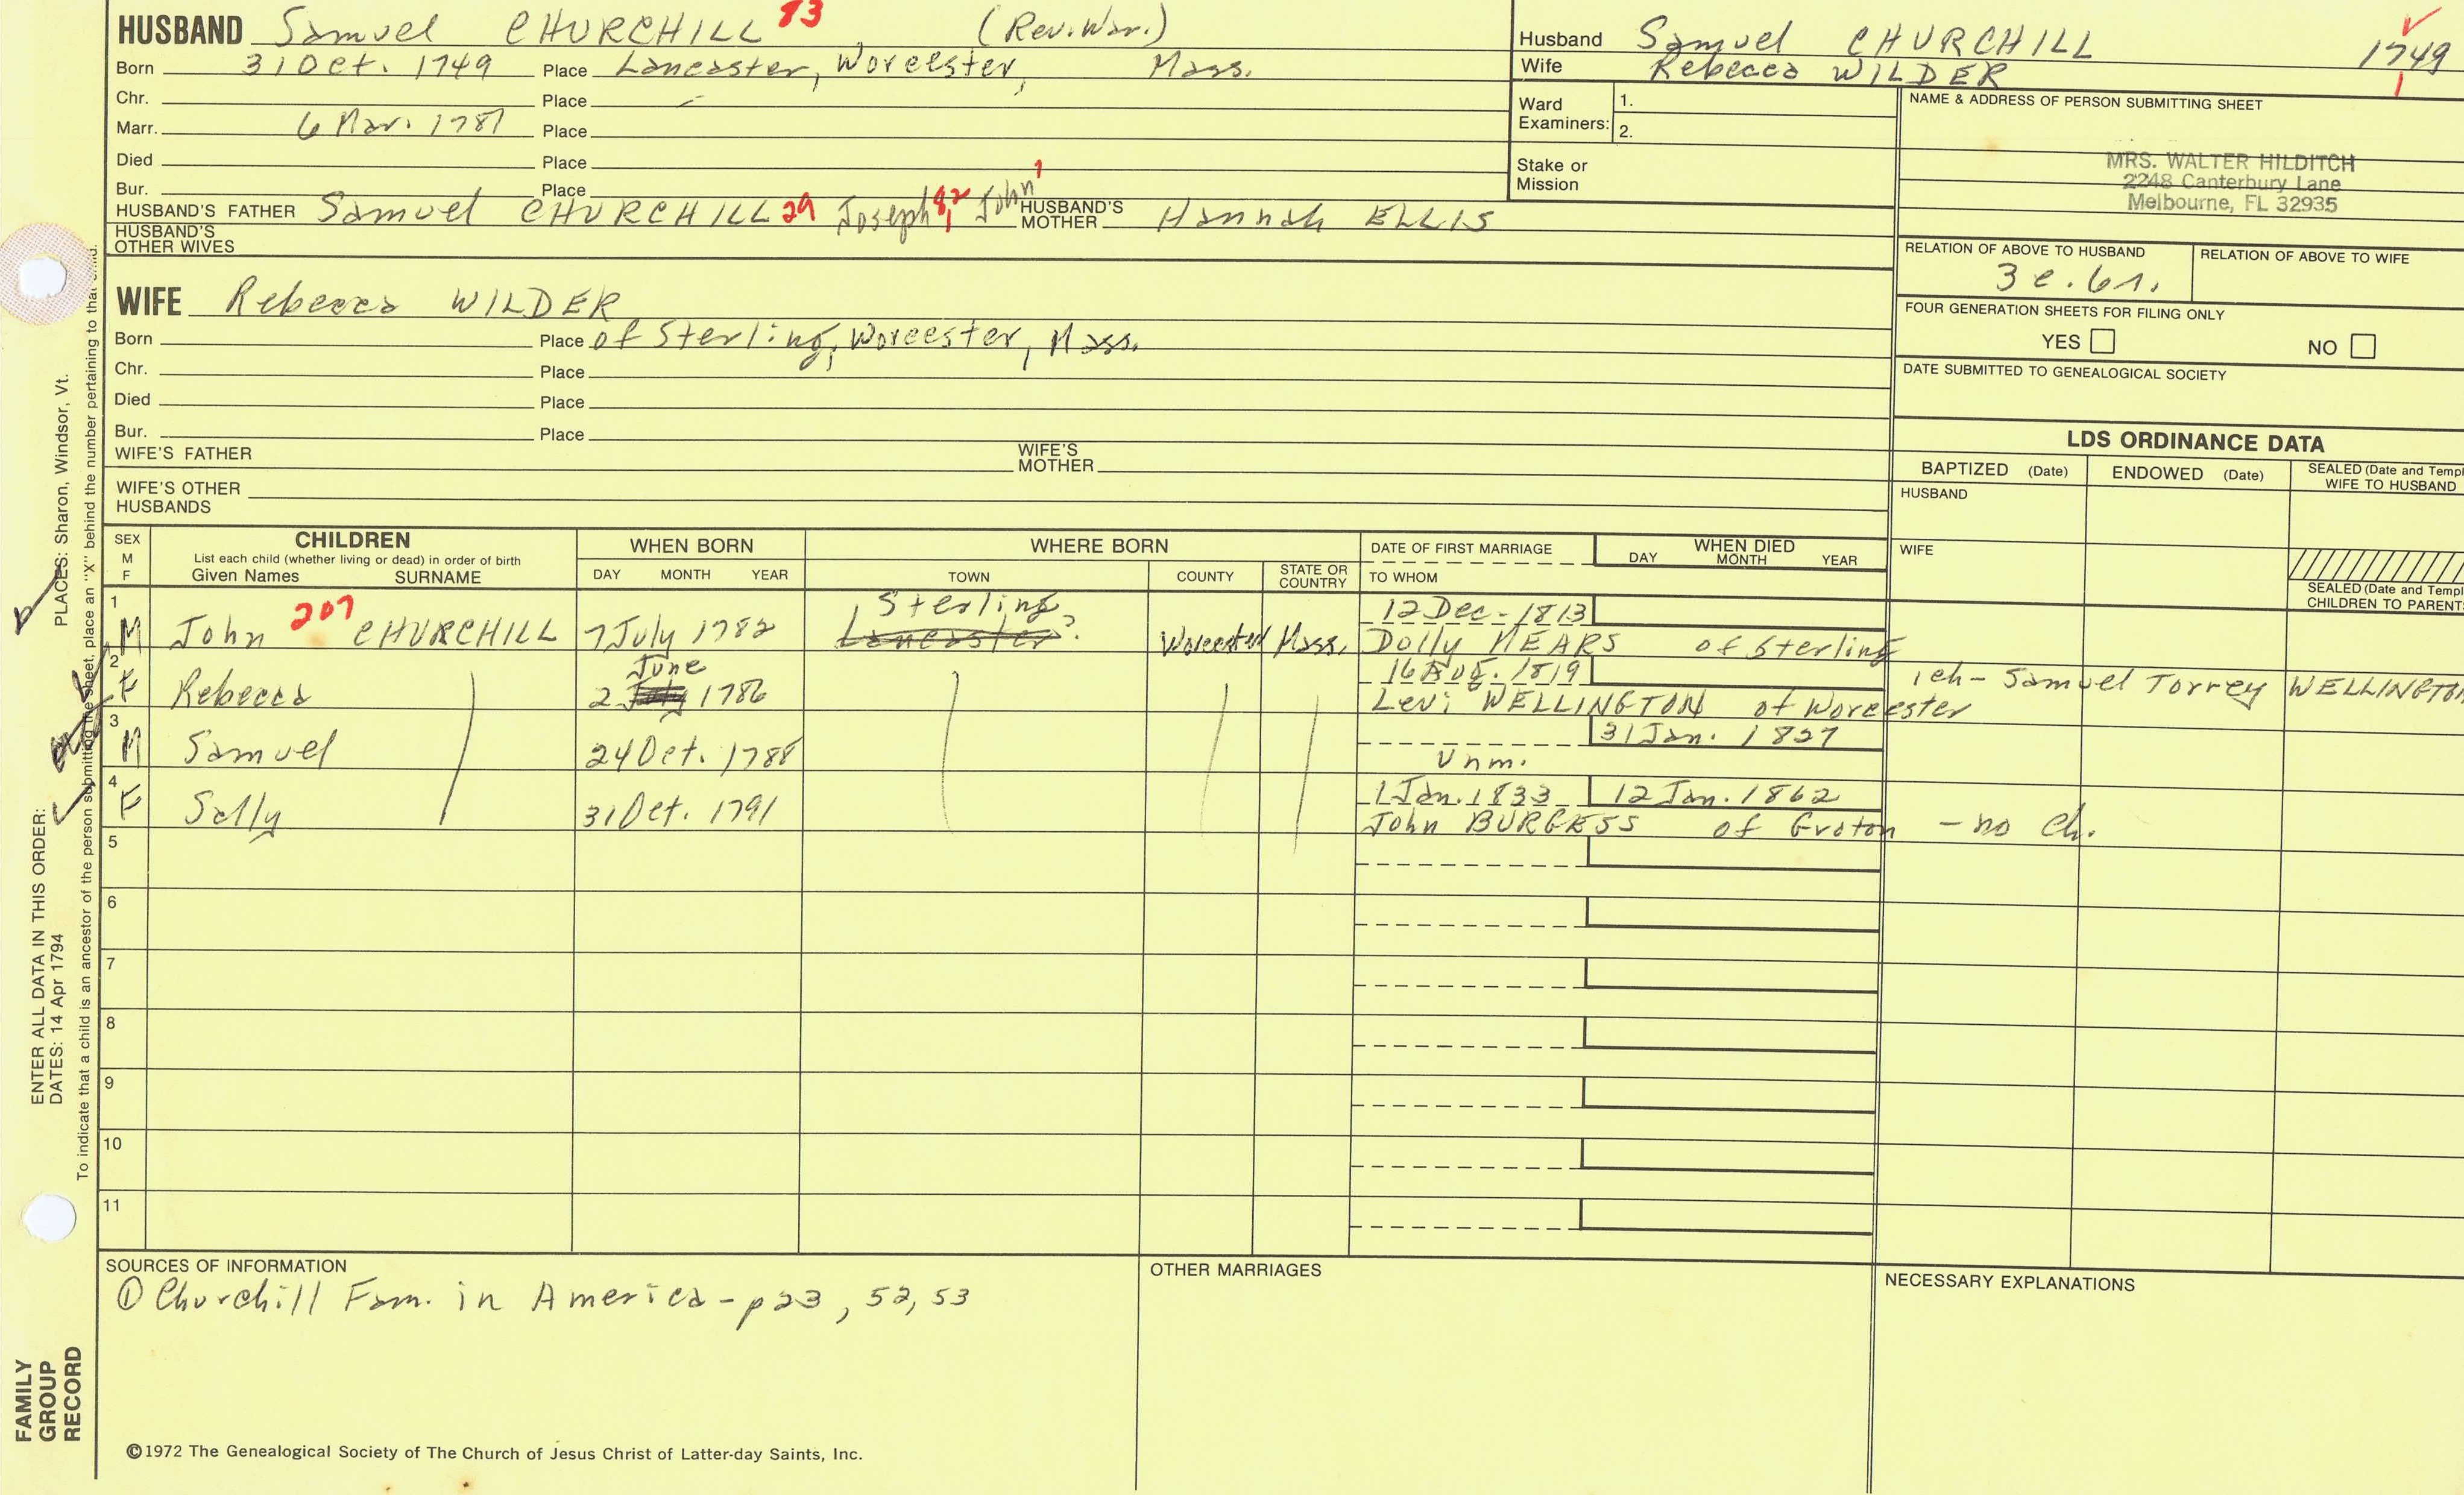 HUSBAND Samuel CHURCHILL 83 (Rev. War.)
Born 31 Oct. 1749 Place Lancaster, Worcester, Mass.
Chr. Place
Marr. 6 Mar. 1781 Place
Died Place
Bur. Place
HUSBAND'S FATHER Samuel CHURCHILL 29 Joseph 8,2 John 1 HUSBAND'S MOTHER Hannah ELLIS
HUSBAND'S OTHER WIVES
Husband Samuel CHURCHILL 1749
Wife Rebecca WILDER
Ward Examiners: 1.
2.
Stake or Mission
NAME & ADDRESS OF PERSON SUBMITTING SHEET
MRS. WALTER HILDITCH
2248 Canterbury Lane
Melbourne, FL 32935
RELATION OF ABOVE TO HUSBAND RELATION OF ABOVE TO WIFE
FOUR GENERATION SHEETS FOR FILING ONLY
YES NO
DATE SUBMITTED TO GENEALOGICAL SOCIETY
WIFE Rebecca WILDER
Born Place of Sterling, Worcester, Mass.
Chr. Place
Died Place
Bur. Place
WIFE'S FATHER WIFE'S MOTHER
WIFE'S OTHER HUSBANDS
LDS ORDINANCE DATA
BAPTIZED (Date) ENDOWED (Date) SEALED (Date and Templ
WIFE TO HUSBAND
HUSBAND
WIFE
SEALED (Date and Templ
CHILDREN TO PARENT
SEX M F CHILDREN WHEN BORN WHERE BORN DATE OF FIRST MARRIAGE WHEN DIED
List each child (whether living or dead) in order of birth
Given Names SURNAME DAY MONTH YEAR TOWN COUNTY STATE OR COUNTRY TO WHOM DAY MONTH YEAR
1 Sterling 12 Dec. 1813
M John 207 CHURCHILL 7 July 1782 Lancaster? Worcester Mass. Dolly MEARS of Sterling
2 June 16 Aug. 1819
F Rebecca 2 July 1786 Levi WELLINGTON of Worcester 1 ch - Samuel Torrey WELLINGTON
3 31 Jan. 1827
M Samuel 24 Oct. 1788 Unm.
4 1 Jan. 1833 12 Jan. 1862
F Sally 31 Oct. 1791 John BURGESS of Groton - no ch.
5
6
7
8
9
10
11
SOURCES OF INFORMATION
① Churchill Fam. in America - p 23, 52, 53
OTHER MARRIAGES
NECESSARY EXPLANATIONS
©1972 The Genealogical Society of The Church of Jesus Christ of Latter-day Saints, Inc.
FAMILY GROUP RECORD
ENTER ALL DATA IN THIS ORDER:
DATES: 14 Apr 1794
PLACES: Sharon, Windsor, Vt.
To indicate that a child is an ancestor of the person submitting the sheet, place an "X" behind the number pertaining to that child.